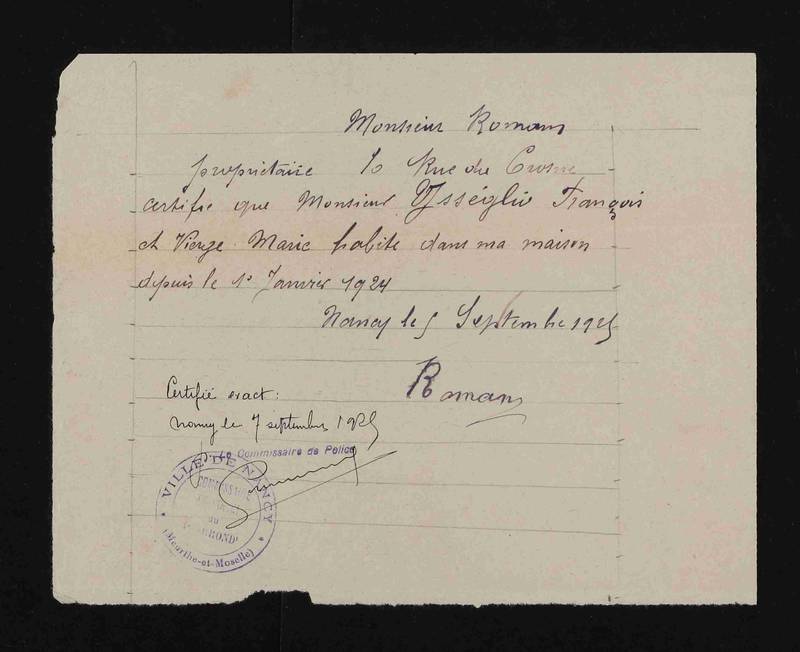 Monsieur Romans
propriétaire 10 Rue du Crosne
certifie que Monsieur Ysséglio François
et Vierge Marie habite dans ma maison
depuis le 1° Janvier 1924
Nancy le 5 Septembre 1925
Romans
Certifié exact :
Nancy le 7 septembre 1925
Le Commissaire de Police
VILLE DE NANCY
COMMISSAIRE
(Meurthe-et-Moselle)